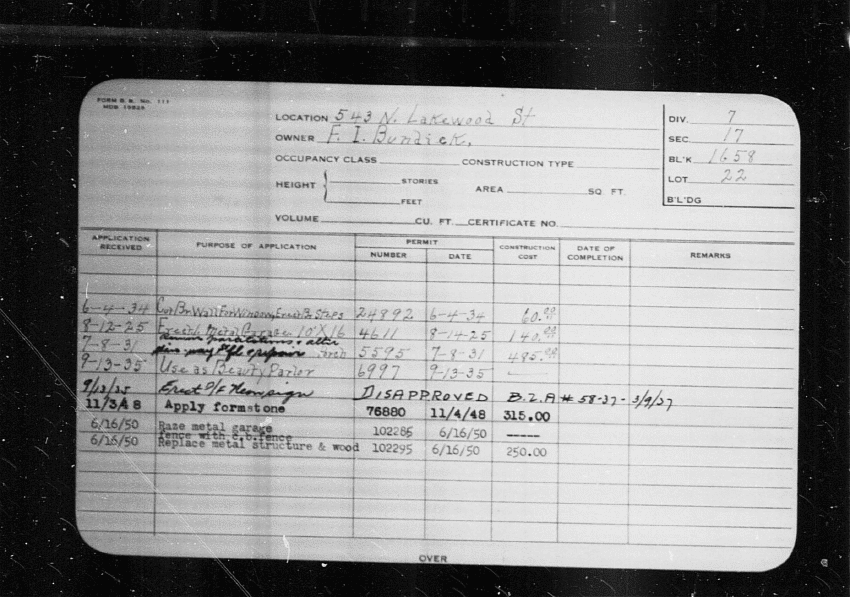 FORM B. B. No. 111
LOCATION 543 N. Lakewood St
OWNER F. I. Bundick,
OCCUPANCY CLASS CONSTRUCTION TYPE
HEIGHT STORIES FEET AREA SQ FT.
VOLUME CU. FT. CERTIFICATE NO.
DIV. 7
SEC. 17
BL'K 1658
LOT 22
B'L'DG
APPLICATION RECEIVED PURPOSE OF APPLICATION PERMIT NUMBER DATE CONSTRUCTION COST DATE OF COMPLETION REMARKS
6-4-34 Cut Br Wall For Window, Erect Br Steps 24892 6-4-34 60.00
8-12-25 Erect 1 Metal Garage 10'X16 4611 8-14-25 140.00
7-8-31 partitions & alter & repair 5595 7-8-31 485.00
9-13-35 Use as Beauty Parlor 6997 9-13-35 -
9/13/35 Erect D/F Neon sign DISAPPROVED B.Z.A # 58-37 - 3/9/37
11/348 Apply formstone 76880 11/4/48 315.00
6/16/50 Raze metal garage 102285 6/16/50 -----
fence with c.b.fence
6/16/50 Replace metal structure & wood 102295 6/16/50 250.00
OVER